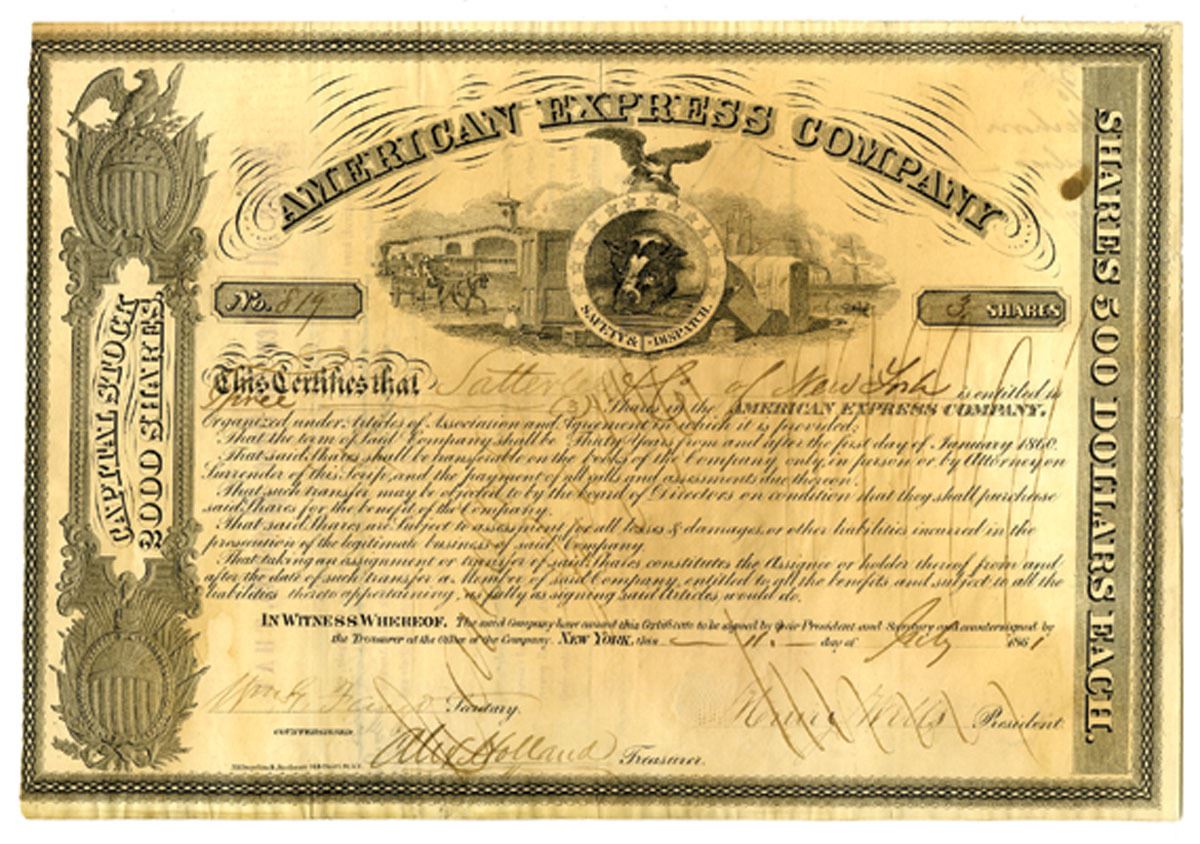 AMERICAN EXPRESS COMPANY
SAFETY & DISPATCH.
No. 819
3 SHARES
CAPITAL STOCK
2000 SHARES
SHARES 500 DOLLARS EACH.
This Certifies that Satterlee & Co of New York is entitled to
Three (3) Shares in the AMERICAN EXPRESS COMPANY.
Organized under Articles of Association and Agreement in which it is provided;
That the term of said Company shall be Thirty Years from and after the first day of January 1860.
That said Shares shall be transferable on the books of the Company only, in person or by Attorney on
Surrender of this Scrip, and the payment of all calls and assessments due thereon.
That such transfer may be objected to by the board of Directors on condition that they shall purchase
said Shares for the benefit of the Company.
That said Shares are Subject to assessment for all losses & damages, or other liabilities incurred in the
prosecution of the legitimate business of said Company.
That taking an assignment or transfer of said Shares constitutes the Assignee or holder thereof from and
after the date of such transfer a Member of said Company entitled to all the benefits and subject to all the
liabilities thereto appertaining, as fully as signing said Articles, would do.
IN WITNESS WHEREOF. The said Company have caused this Certificate to be signed by their President and Secretary and countersigned by
the Treasurer at the Office of the Company. NEW YORK, this 11 day of July 1861
Wm G Fargo Secretary.
Henry Wells President
COUNTERSIGNED
Alex Holland Treasurer.